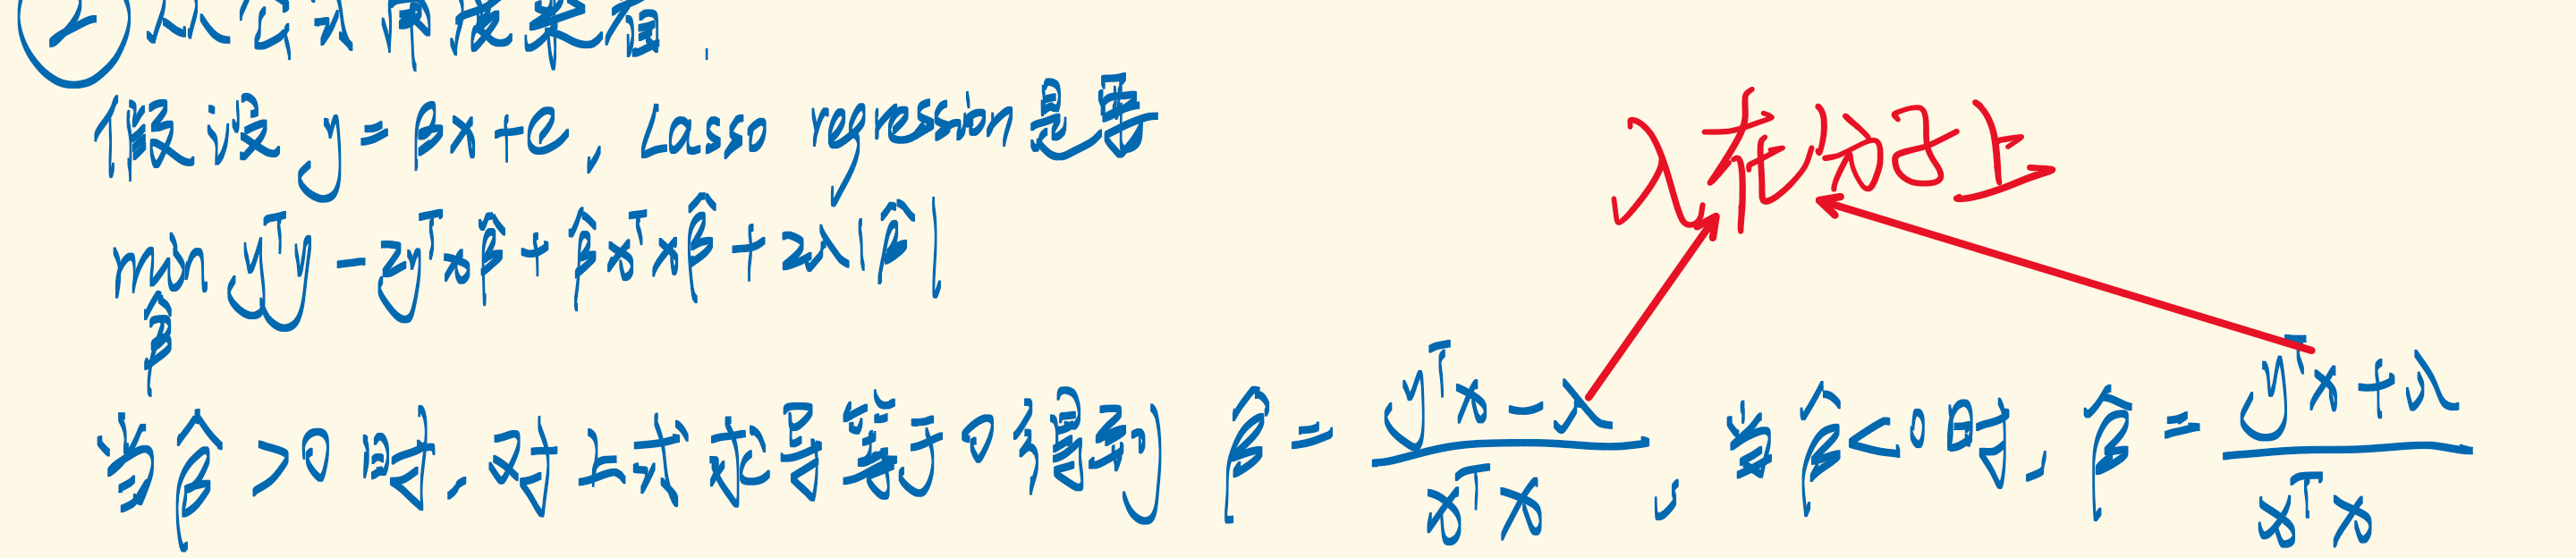 ② 从公式角度来看.
假设 y = βx + e, Lasso regression是要
λ在分子上
min yᵀy - 2yᵀxβ̂ + β̂xᵀxβ̂ + 2λ|β̂|
β̂
当β̂ > 0 时, 对上式求导等于0得到 β̂ = (yᵀx - λ)/(xᵀx), 当β̂ < 0 时, β̂ = (yᵀx + λ)/(xᵀx)